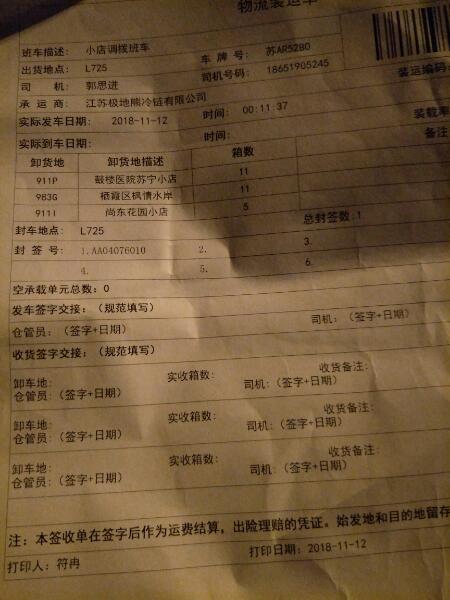 物流装运单
班车描述: 小店调拨班车
出货地点: L725 车 牌 号: 苏AR5280
司 机: 郭思进 司机号码: 18651905245 装运编码:
承 运 商: 江苏极地熊冷链有限公司
实际发车日期: 2018-11-12 时间: 00:11:37 装载率
实际到车日期: 时间: 备注
卸货地 卸货地描述 箱数
911P 鼓楼医院苏宁小店 11
983G 栖霞区枫情水岸 11
911I 尚东花园小店 5
封车地点: L725 总封签数:1
封 签 号 1.AA04076010 2. 3.
4. 5. 6.
空承载单元总数: 0
发车签字交接: (规范填写)
仓管员: (签字+日期) 司机: (签字+日期)
收货签字交接: (规范填写)
卸车地: 实收箱数: 收货备注:
仓管员: (签字+日期) 司机: (签字+日期)
卸车地: 实收箱数: 收货备注:
仓管员: (签字+日期) 司机: (签字+日期)
卸车地: 实收箱数: 收货备注:
仓管员: (签字+日期) 司机: (签字+日期)
注: 本签收单在签字后作为运费结算, 出险理赔的凭证。始发地和目的地留存
打印人: 符冉 打印日期: 2018-11-12